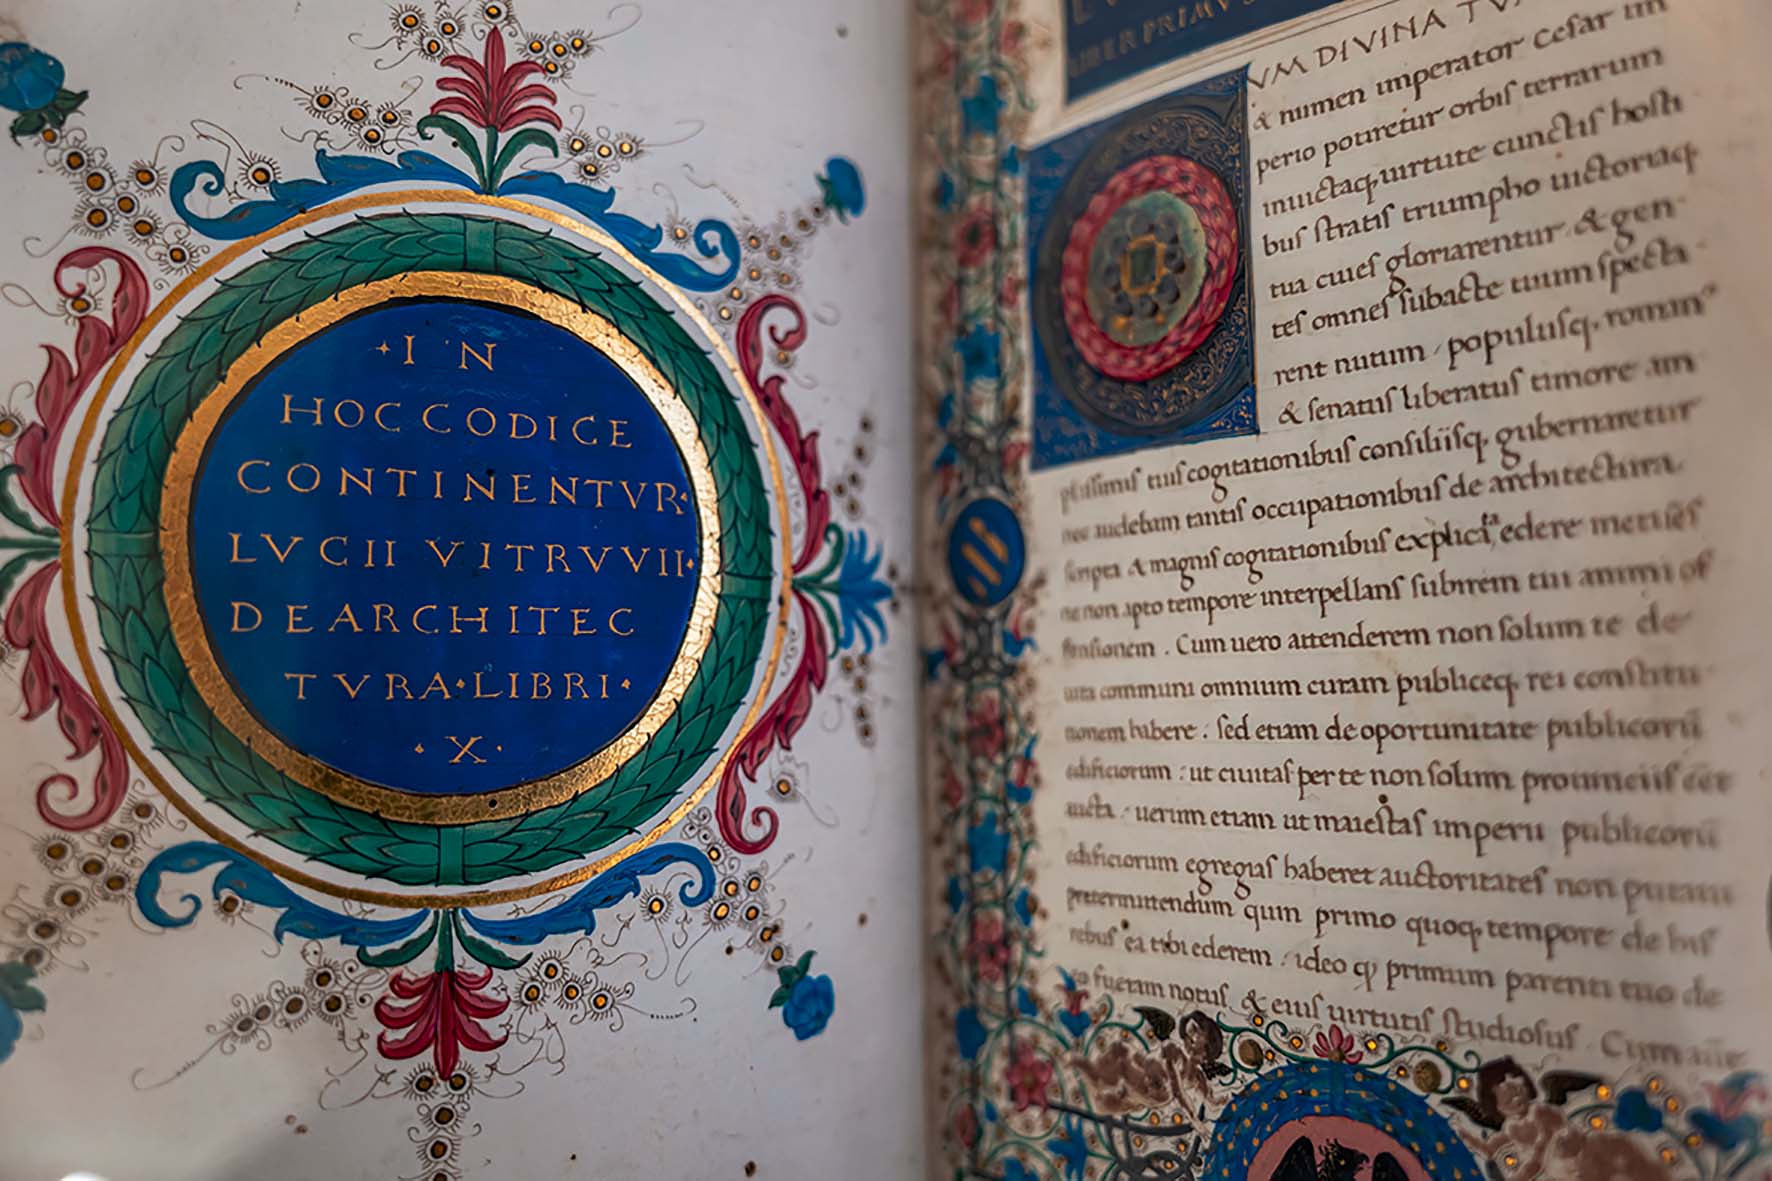 IN
HOC CODICE
CONTINENTVR·
LVCII VITRVVII·
DE ARCHITEC
TVRA·LIBRI·
·X·
LIBER PRIMVS
VM DIVINA TV
& numen imperator cesar im
perio potiretur orbis terrarum
inuictaq; uirtute cunctis hosti
bus stratis triumpho uictoriaq;
tua ciues gloriarentur & gen
tes omnes subacte tuum specta
rent nutum populusq. roman
& senatus liberatus timore am
plissimis tuis cogitationibus consiliisq. gubernaretur
nec audebam tantis occupationibus de architectura
scripta & magnis cogitationibus explicata edere metues
ne non apto tempore interpellans subirem tui animi of
fensionem. Cum uero attenderem non solum te de
uita communi omnium curam publiceq. rei constitu
tionem habere: sed etiam de oportunitate publicorū
edificiorum: ut ciuitas per te non solum prouinciis eet
aucta: uerum etiam ut maiestas imperii publicorū
edificiorum egregias haberet auctoritates non putaui
pretermittendum quin primo quoq. tempore de his
rebus ea tibi ederem: ideo q primum parenti tuo de
eo fueram notus & eius uirtutis studiosus. Cum